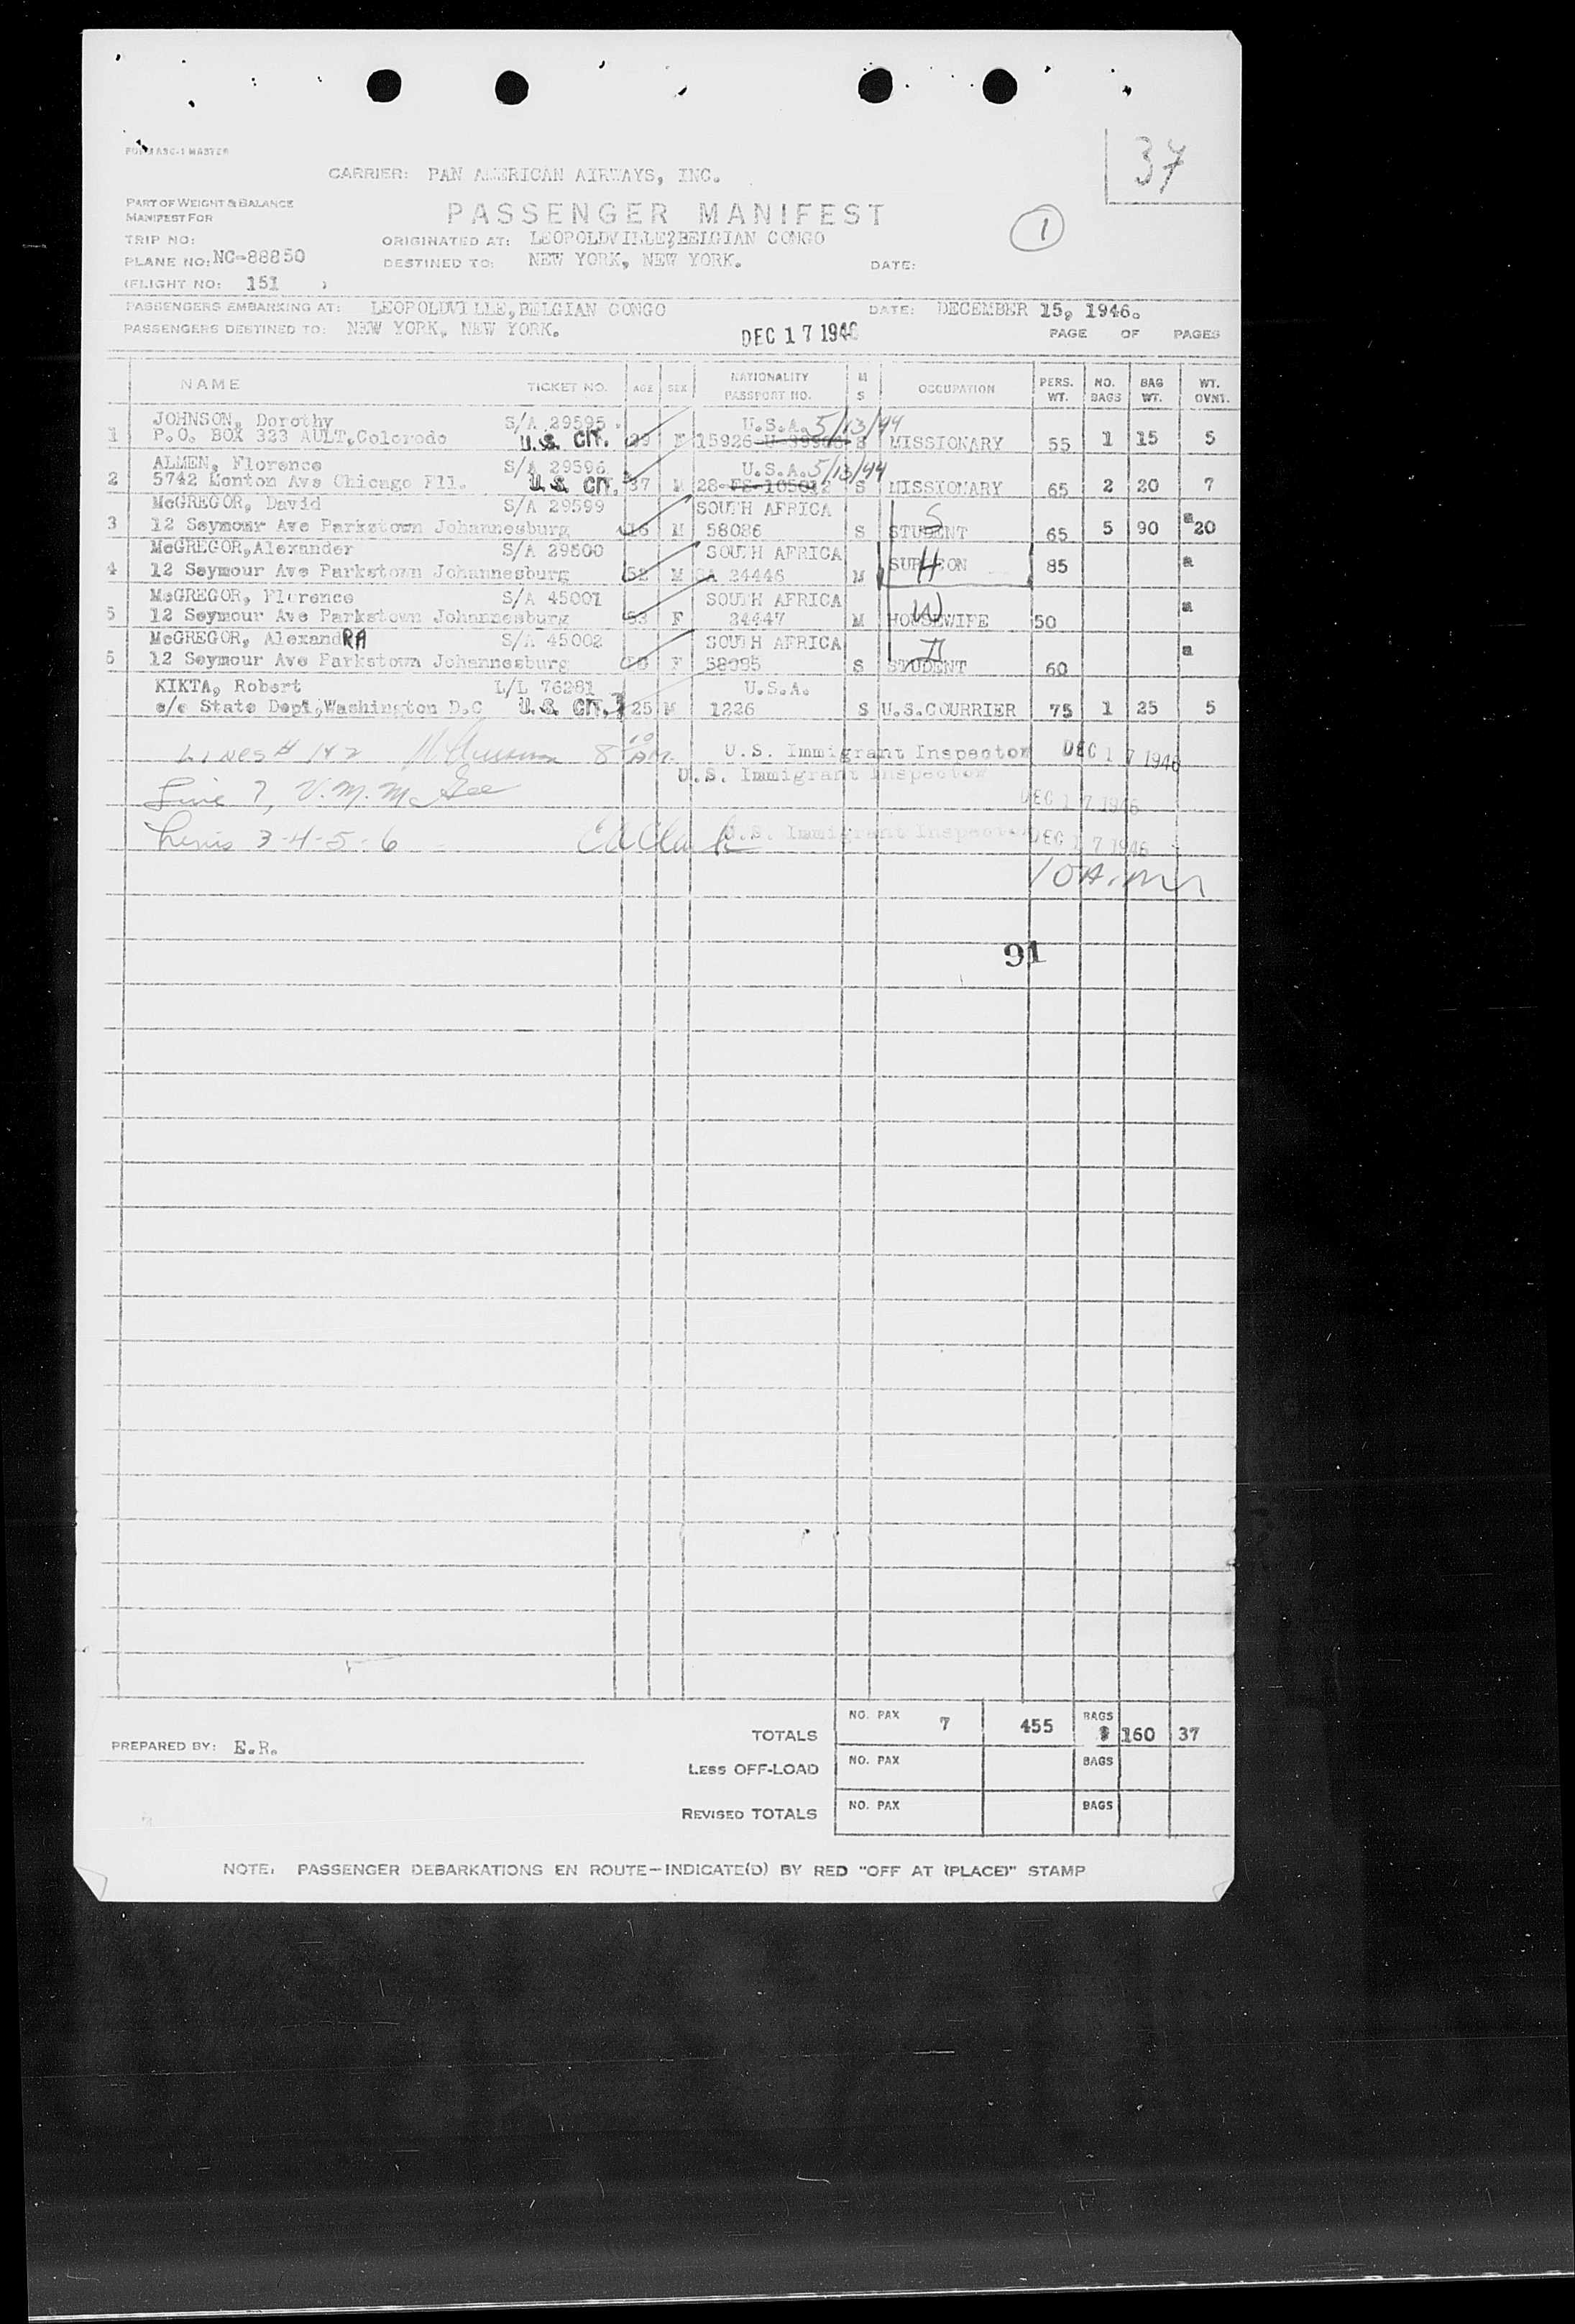 FORM ABC-1 MASTER
37
CARRIER: PAN AMERICAN AIRWAYS, INC.
PART OF WEIGHT & BALANCE
MANIFEST FOR
PASSENGER MANIFEST
1
TRIP NO:
ORIGINATED AT: LEOPOLDVILLE,BELGIAN CONGO
PLANE NO: NC-88850
DESTINED TO: NEW YORK, NEW YORK.
DATE:
(FLIGHT NO: 151 )
PASSENGERS EMBARKING AT: LEOPOLDVILLE,BELGIAN CONGO
DATE: DECEMBER 15, 1946.
PASSENGERS DESTINED TO: NEW YORK, NEW YORK.
DEC 17 1946
PAGE OF PAGES
NAME TICKET NO. AGE SEX NATIONALITY PASSPORT NO. M S OCCUPATION PERS. WT. NO. BAGS BAG WT. WT. OVNT.
JOHNSON, Dorothy S/A 29595 U.S.A. 5/13/44
1 P.O. BOX 323 AULT,Colorodo U.S. CIT. F 15926 S MISSIONARY 55 1 15 5
ALMEN, Florence S/A 29596 U.S.A. 5/13/44
2 5742 Ave Chicago U.S. CIT. 37 M 28-FS-105012 S MISSIONARY 65 2 20 7
McGREGOR, David S/A 29599 SOUTH AFRICA S
3 12 Seymour Ave Parkstown Johannesburg 16 M 58086 S STUDENT 65 5 90 20
McGREGOR,Alexander S/A 29600 SOUTH AFRICA H
4 12 Seymour Ave Parkstown Johannesburg 52 M CA 24446 M SURGEON 85
McGREGOR, Florence S/A 45001 SOUTH AFRICA W
5 12 Seymour Ave Parkstown Johannesburg 53 F 24447 M HOUSEWIFE 50
McGREGOR, AlexandRA S/A 45002 SOUTH AFRICA D
6 12 Seymour Ave Parkstown Johannesburg F 58095 S STUDENT 60
KIKTA, Robert L/L 76281 U.S.A.
c/o State Dept,Washington D.C U.S. CIT. 25 M 1226 S U.S.COURRIER 75 1 25 5
Lines # 1 & 2 8 10 AM U.S. Immigrant Inspector DEC 17 1946
U.S. Immigrant Inspector
Line 7, V.M. McGee DEC 17 1946
Lines 3-4-5-6 EA Clark U.S. Immigrant Inspector DEC 17 1946
10 A.M
91
TOTALS NO. PAX 7 455 BAGS 9 160 37
PREPARED BY: E.R.
LESS OFF-LOAD NO. PAX BAGS
REVISED TOTALS NO. PAX BAGS
NOTE: PASSENGER DEBARKATIONS EN ROUTE—INDICATE(D) BY RED "OFF AT (PLACE)" STAMP